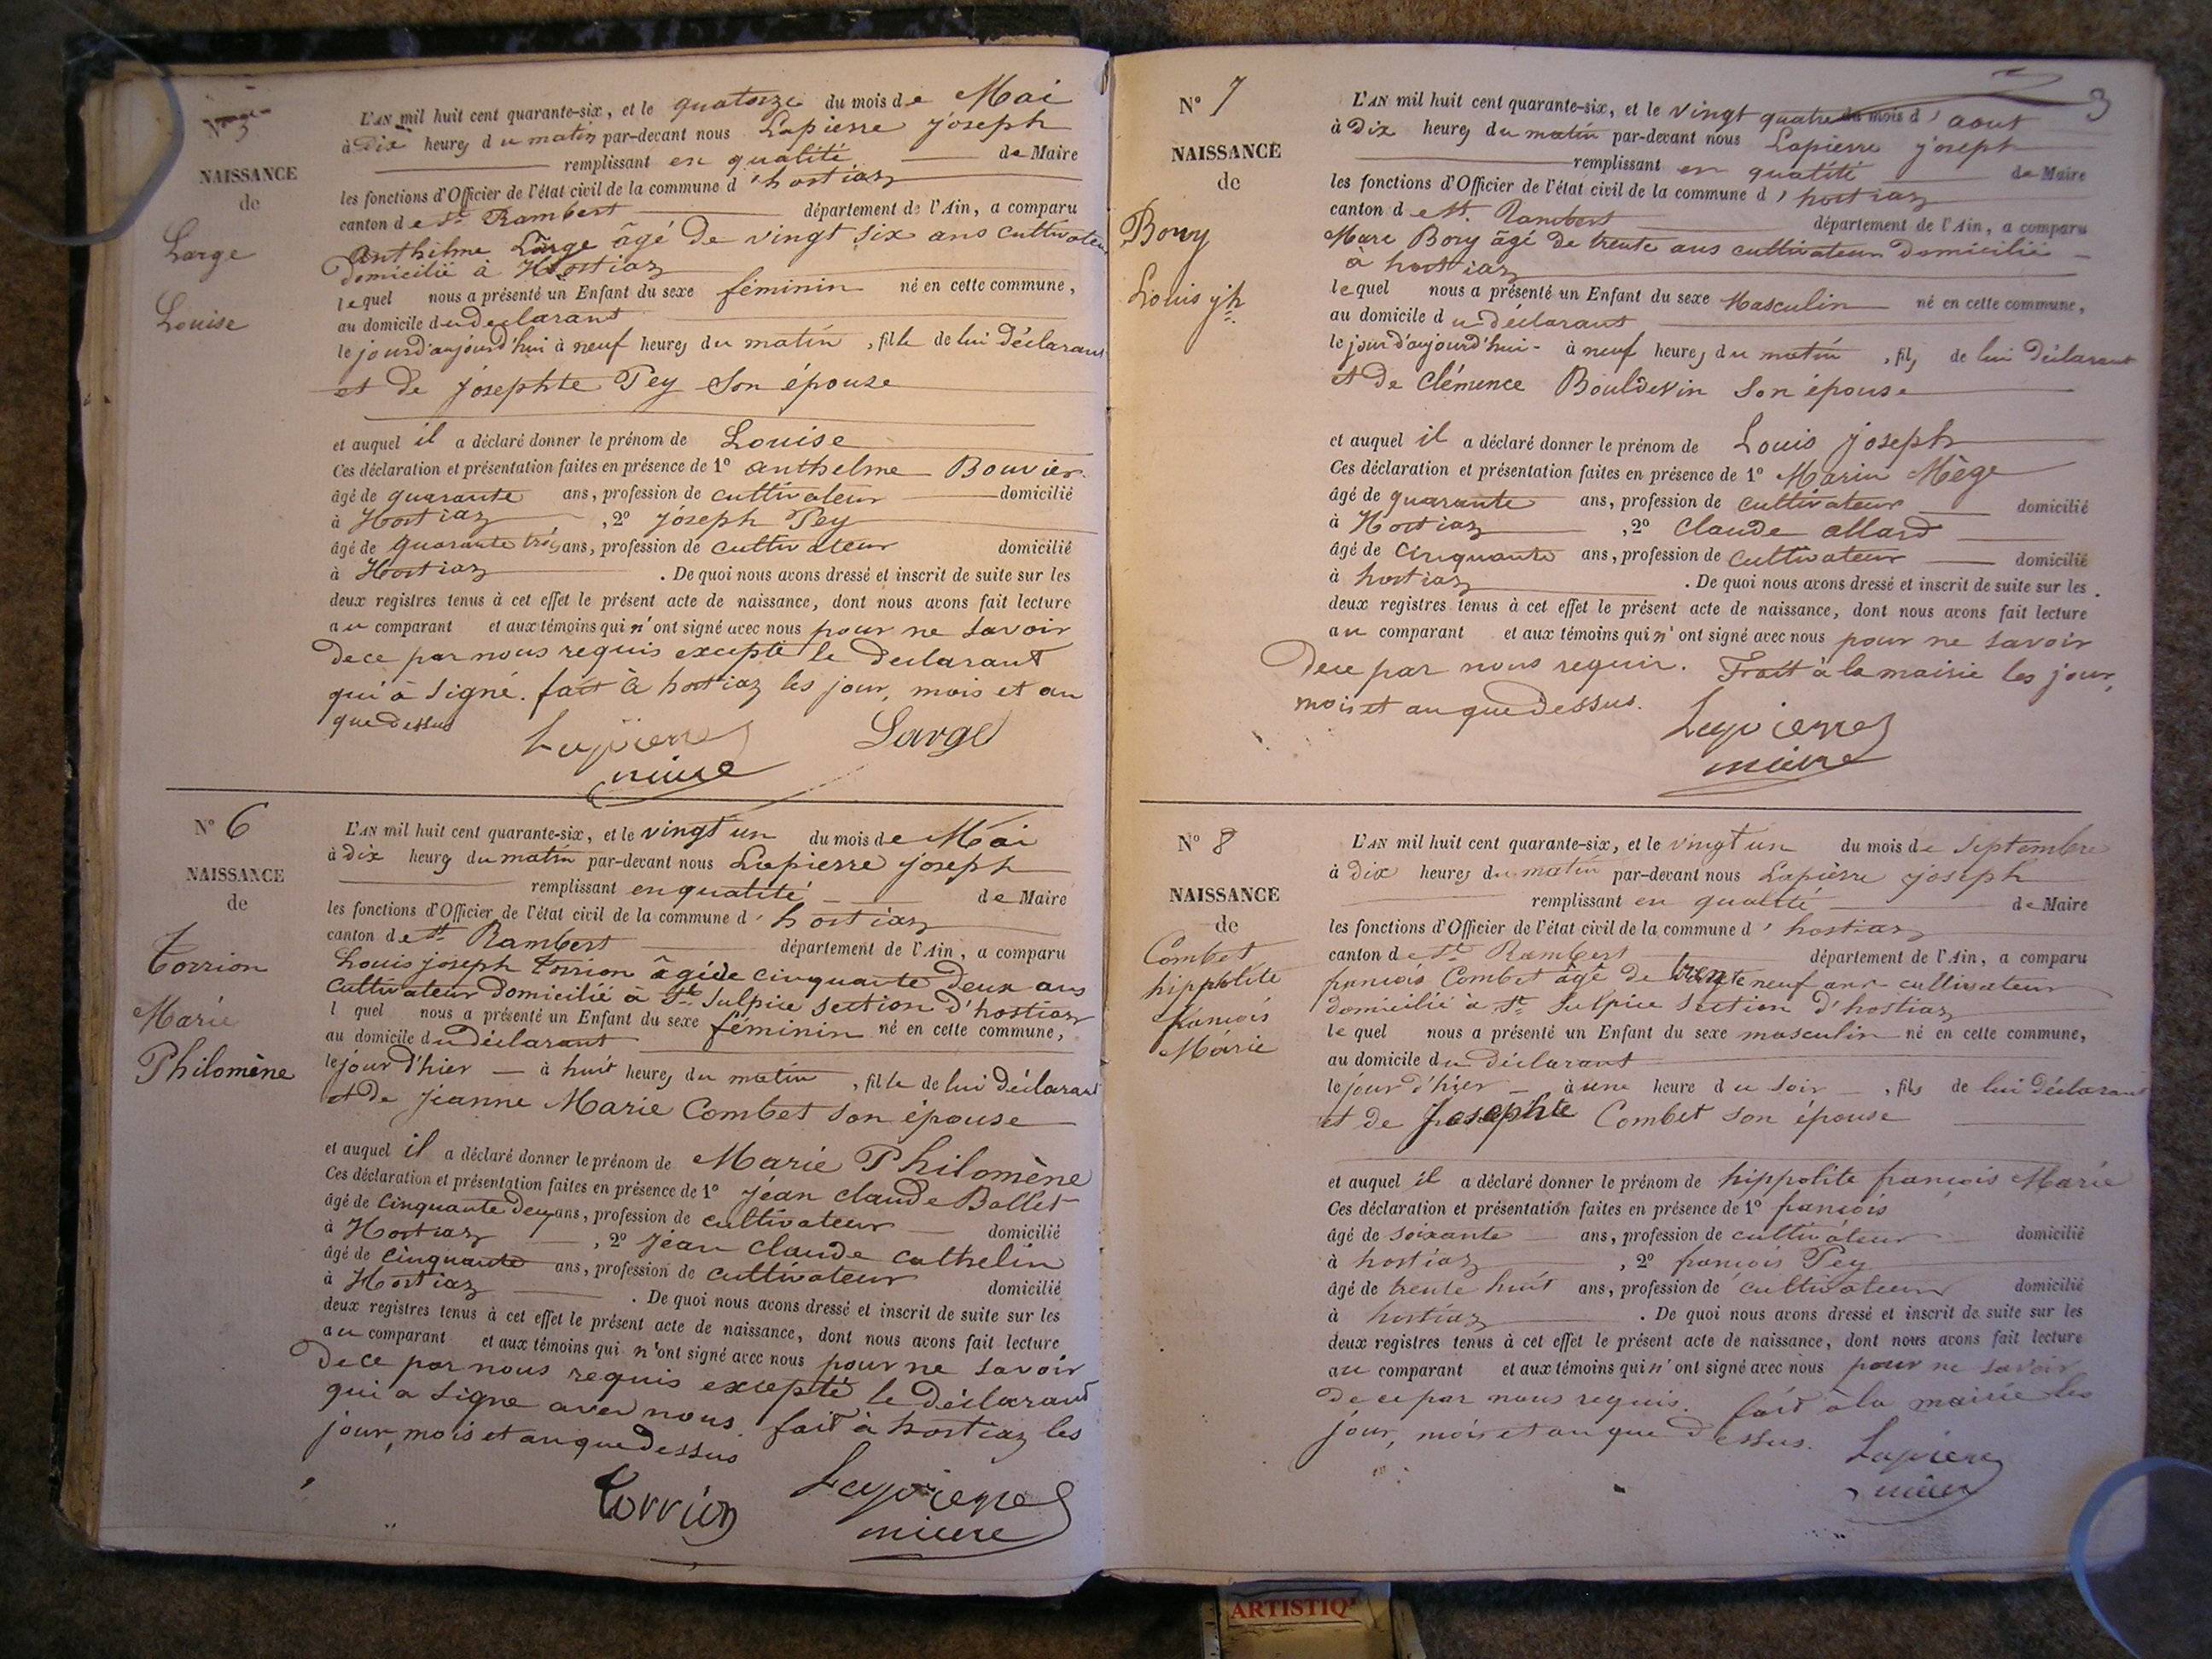 N° 5
NAISSANCE
de
Large
Louise
L'AN mil huit cent quarante-six, et le quatorze du mois de Mai
à Dix heures du matin par-devant nous Lapierre joseph
remplissant en qualité de Maire
les fonctions d'Officier de l'état civil de la commune d'hostiaz
canton de St Rambert département de l'Ain, a comparu
Anthelme Large âgé de vingt six ans cultivateur
domicilié à Hostiaz
lequel nous a présenté un Enfant du sexe féminin né en cette commune,
au domicile du declarant
le jour d'aujourd'hui à neuf heures du matin, fille de lui Déclarant
et de josephte Pey son épouse
et auquel il a déclaré donner le prénom de Louise
Ces déclaration et présentation faites en présence de 1° anthelme Bouvier
âgé de quarante ans, profession de cultivateur domicilié
à Hostiaz, 2° joseph Pey
âgé de quarante trois ans, profession de cultivateur domicilié
à Hostiaz. De quoi nous avons dressé et inscrit de suite sur les
deux registres tenus à cet effet le présent acte de naissance, dont nous avons fait lecture
au comparant et aux témoins qui n'ont signé avec nous pour ne savoir
de ce par nous requis excepté le declarant
qui à signé. fait à hostiaz les jour, mois et an
que dessus
Lapierre Large
maire
N° 6
NAISSANCE
de
Torrion
Marie
Philomène
L'AN mil huit cent quarante-six, et le vingt un du mois de Mai
à dix heures du matin par-devant nous Lapierre joseph
remplissant en qualité de Maire
les fonctions d'Officier de l'état civil de la commune d'hostiaz
canton de St Rambert département de l'Ain, a comparu
Louis joseph Torrion âgé de cinquante deux ans
cultivateur domicilié à St Sulpice section d'hostiaz
l quel nous a présenté un Enfant du sexe féminin né en cette commune,
au domicile du déclarant
le jour d'hier à huit heures du matin, fille de lui déclarant
et de jeanne Marie Combet son épouse
et auquel il a déclaré donner le prénom de Marie Philomène
Ces déclaration et présentation faites en présence de 1° jean claude Ballet
âgé de cinquante deux ans, profession de cultivateur domicilié
à Hostiaz, 2° jean claude cathelin
âgé de cinquante ans, profession de cultivateur domicilié
à Hostiaz. De quoi nous avons dressé et inscrit de suite sur les
deux registres tenus à cet effet le présent acte de naissance, dont nous avons fait lecture
au comparant et aux témoins qui n'ont signé avec nous pour ne savoir
de ce par nous requis excepté le déclarant
qui a signe avec nous. fait à hostiaz les
jour, mois et an que dessus
Torrion Lapierre
maire
3
N° 7
NAISSANCE
de
Bovy
Louis jh
L'AN mil huit cent quarante-six, et le vingt quatre du mois d'aout
à Dix heures du matin par-devant nous Lapierre joseph
remplissant en qualité de Maire
les fonctions d'Officier de l'état civil de la commune d'hostiaz
canton de St. Rambert département de l'Ain, a comparu
Marc Bovy âgé de trente ans cultivateur domicilié
à hostiaz
lequel nous a présenté un Enfant du sexe Masculin né en cette commune,
au domicile du déclarant
le jour d'aujourd'hui à neuf heures du matin, fils de lui déclarant
et de Clémence Bouldevin son épouse
et auquel il a déclaré donner le prénom de Louis joseph
Ces déclaration et présentation faites en présence de 1° Marin Mège
âgé de quarante ans, profession de cultivateur domicilié
à Hostiaz, 2° claude allard
âgé de cinquante ans, profession de cultivateur domicilié
à hostiaz. De quoi nous avons dressé et inscrit de suite sur les
deux registres tenus à cet effet le présent acte de naissance, dont nous avons fait lecture
au comparant et aux témoins qui n'ont signé avec nous pour ne savoir
de ce par nous requir. Frait à la mairie les jour,
mois et an que dessus.
Lapierre
maire
N° 8
NAISSANCE
de
Combet
hippolite
francois
Marie
L'AN mil huit cent quarante-six, et le vingt un du mois de septembre
à dix heures du matin par-devant nous Lapierre joseph
remplissant en qualité de Maire
les fonctions d'Officier de l'état civil de la commune d'hostiaz
canton de St Rambert département de l'Ain, a comparu
françois Combet âgé de trente neuf ans cultivateur
domicilié à St Sulpice section d'hostiaz
lequel nous a présenté un Enfant du sexe masculin né en cette commune,
au domicile du déclarant
le jour d'hier à une heure du soir, fils de lui déclarant
et de josephte Combet son épouse
et auquel il a déclaré donner le prénom de hippolite françois Marie
Ces déclaration et présentation faites en présence de 1° francois
âgé de soixante ans, profession de cultivateur domicilié
à hostiaz, 2° françois Pey
âgé de trente huit ans, profession de cultivateur domicilié
à hostiaz. De quoi nous avons dressé et inscrit de suite sur les
deux registres tenus à cet effet le présent acte de naissance, dont nous avons fait lecture
au comparant et aux témoins qui n'ont signé avec nous pour ne savoir
de ce par nous requis. fait à la mairie les
jour, mois et an que dessus.
Lapierre
maire
ARTISTIQ